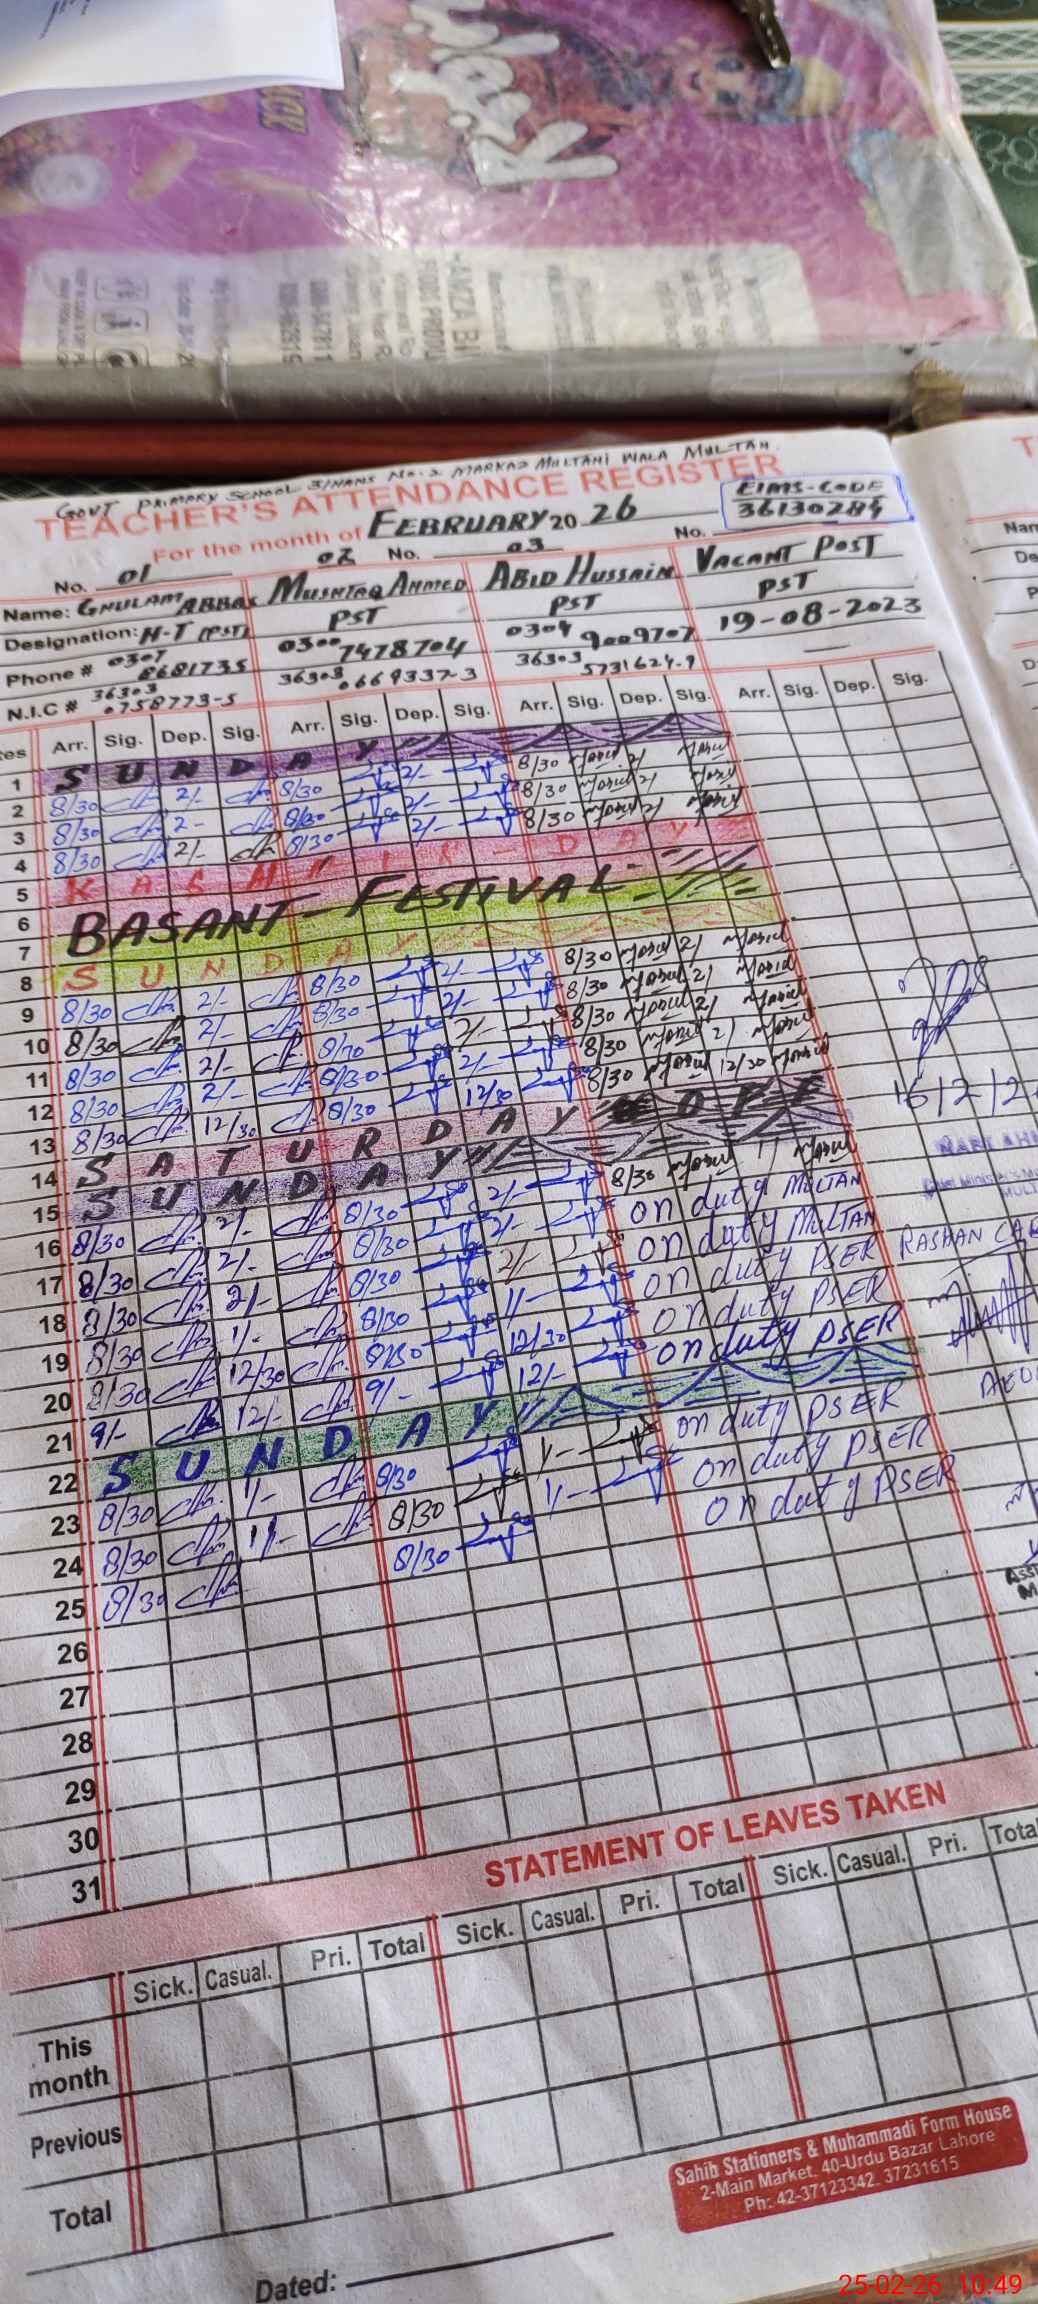 GOVT PRIMARY SCHOOL MARKAZ MULTANI WALA MULTAN
TEACHER'S ATTENDANCE REGISTER
EIMS-CODE
36130284
For the month of FEBRUARY 20 26
No. 01 02 No. 03 No.
Name: GHULAM ABBAS MUSHTAQ AHMED ABID HUSSAIN VACANT POST
Designation: H-T (PST) PST PST PST
Phone # 0307 8681735 0300 7478704 0304 9009707 19-08-2023
N.I.C # 36303 0758773-5 36303 0669337-3 36303 5731624-9
Arr. Sig. Dep. Sig. Arr. Sig. Dep. Sig. Arr. Sig. Dep. Sig. Arr. Sig. Dep. Sig.
1 SUNDAY
2 8/30 2/- 8/30 2/- 8/30 2/
3 8/30 2- 8/30 2/- 8/30 2/
4 8/30 2/- 8/30 2/- 8/30 2/
5 KASHMIR-DAY
6 BASANT-FESTIVAL
7
8 SUNDAY
9 8/30 2/- 8/30 2/- 8/30 2/
10 8/30 2/- 8/30 2/- 8/30 2/
11 8/30 2/- 8/30 2/- 8/30 2/
12 8/30 2/- 8/30 2/- 8/30 2/
13 8/30 12/30 8/30 12/30 8/30 12/30
14 SATURDAY
15 SUNDAY
16 8/30 2/- 8/30 2/- 8/30
17 8/30 2/- 8/30 2/- on duty MULTAN
18 8/30 2/- 8/30 2/- on duty MULTAN
19 8/30 1/- 8/30 1/- on duty PSER RASHAN
20 8/30 12/30 8/30 12/30 on duty PSER
21 9/- 12/- 9/- 12/- on duty PSER
22 SUNDAY
23 8/30 1/- 8/30 1/- on duty PSER
24 8/30 1/- 8/30 1/- on duty PSER
25 8/30 8/30 on duty PSER
26
27
28
29
30
31
16/2/2
STATEMENT OF LEAVES TAKEN
Sick. Casual. Pri. Total Sick. Casual. Pri. Total Sick. Casual. Pri. Total
This month
Previous
Total
Sahib Stationers & Muhammadi Form House
2-Main Market. 40-Urdu Bazar Lahore
Ph: 42-37123342. 37231615
Dated:
25-02-26 10:49